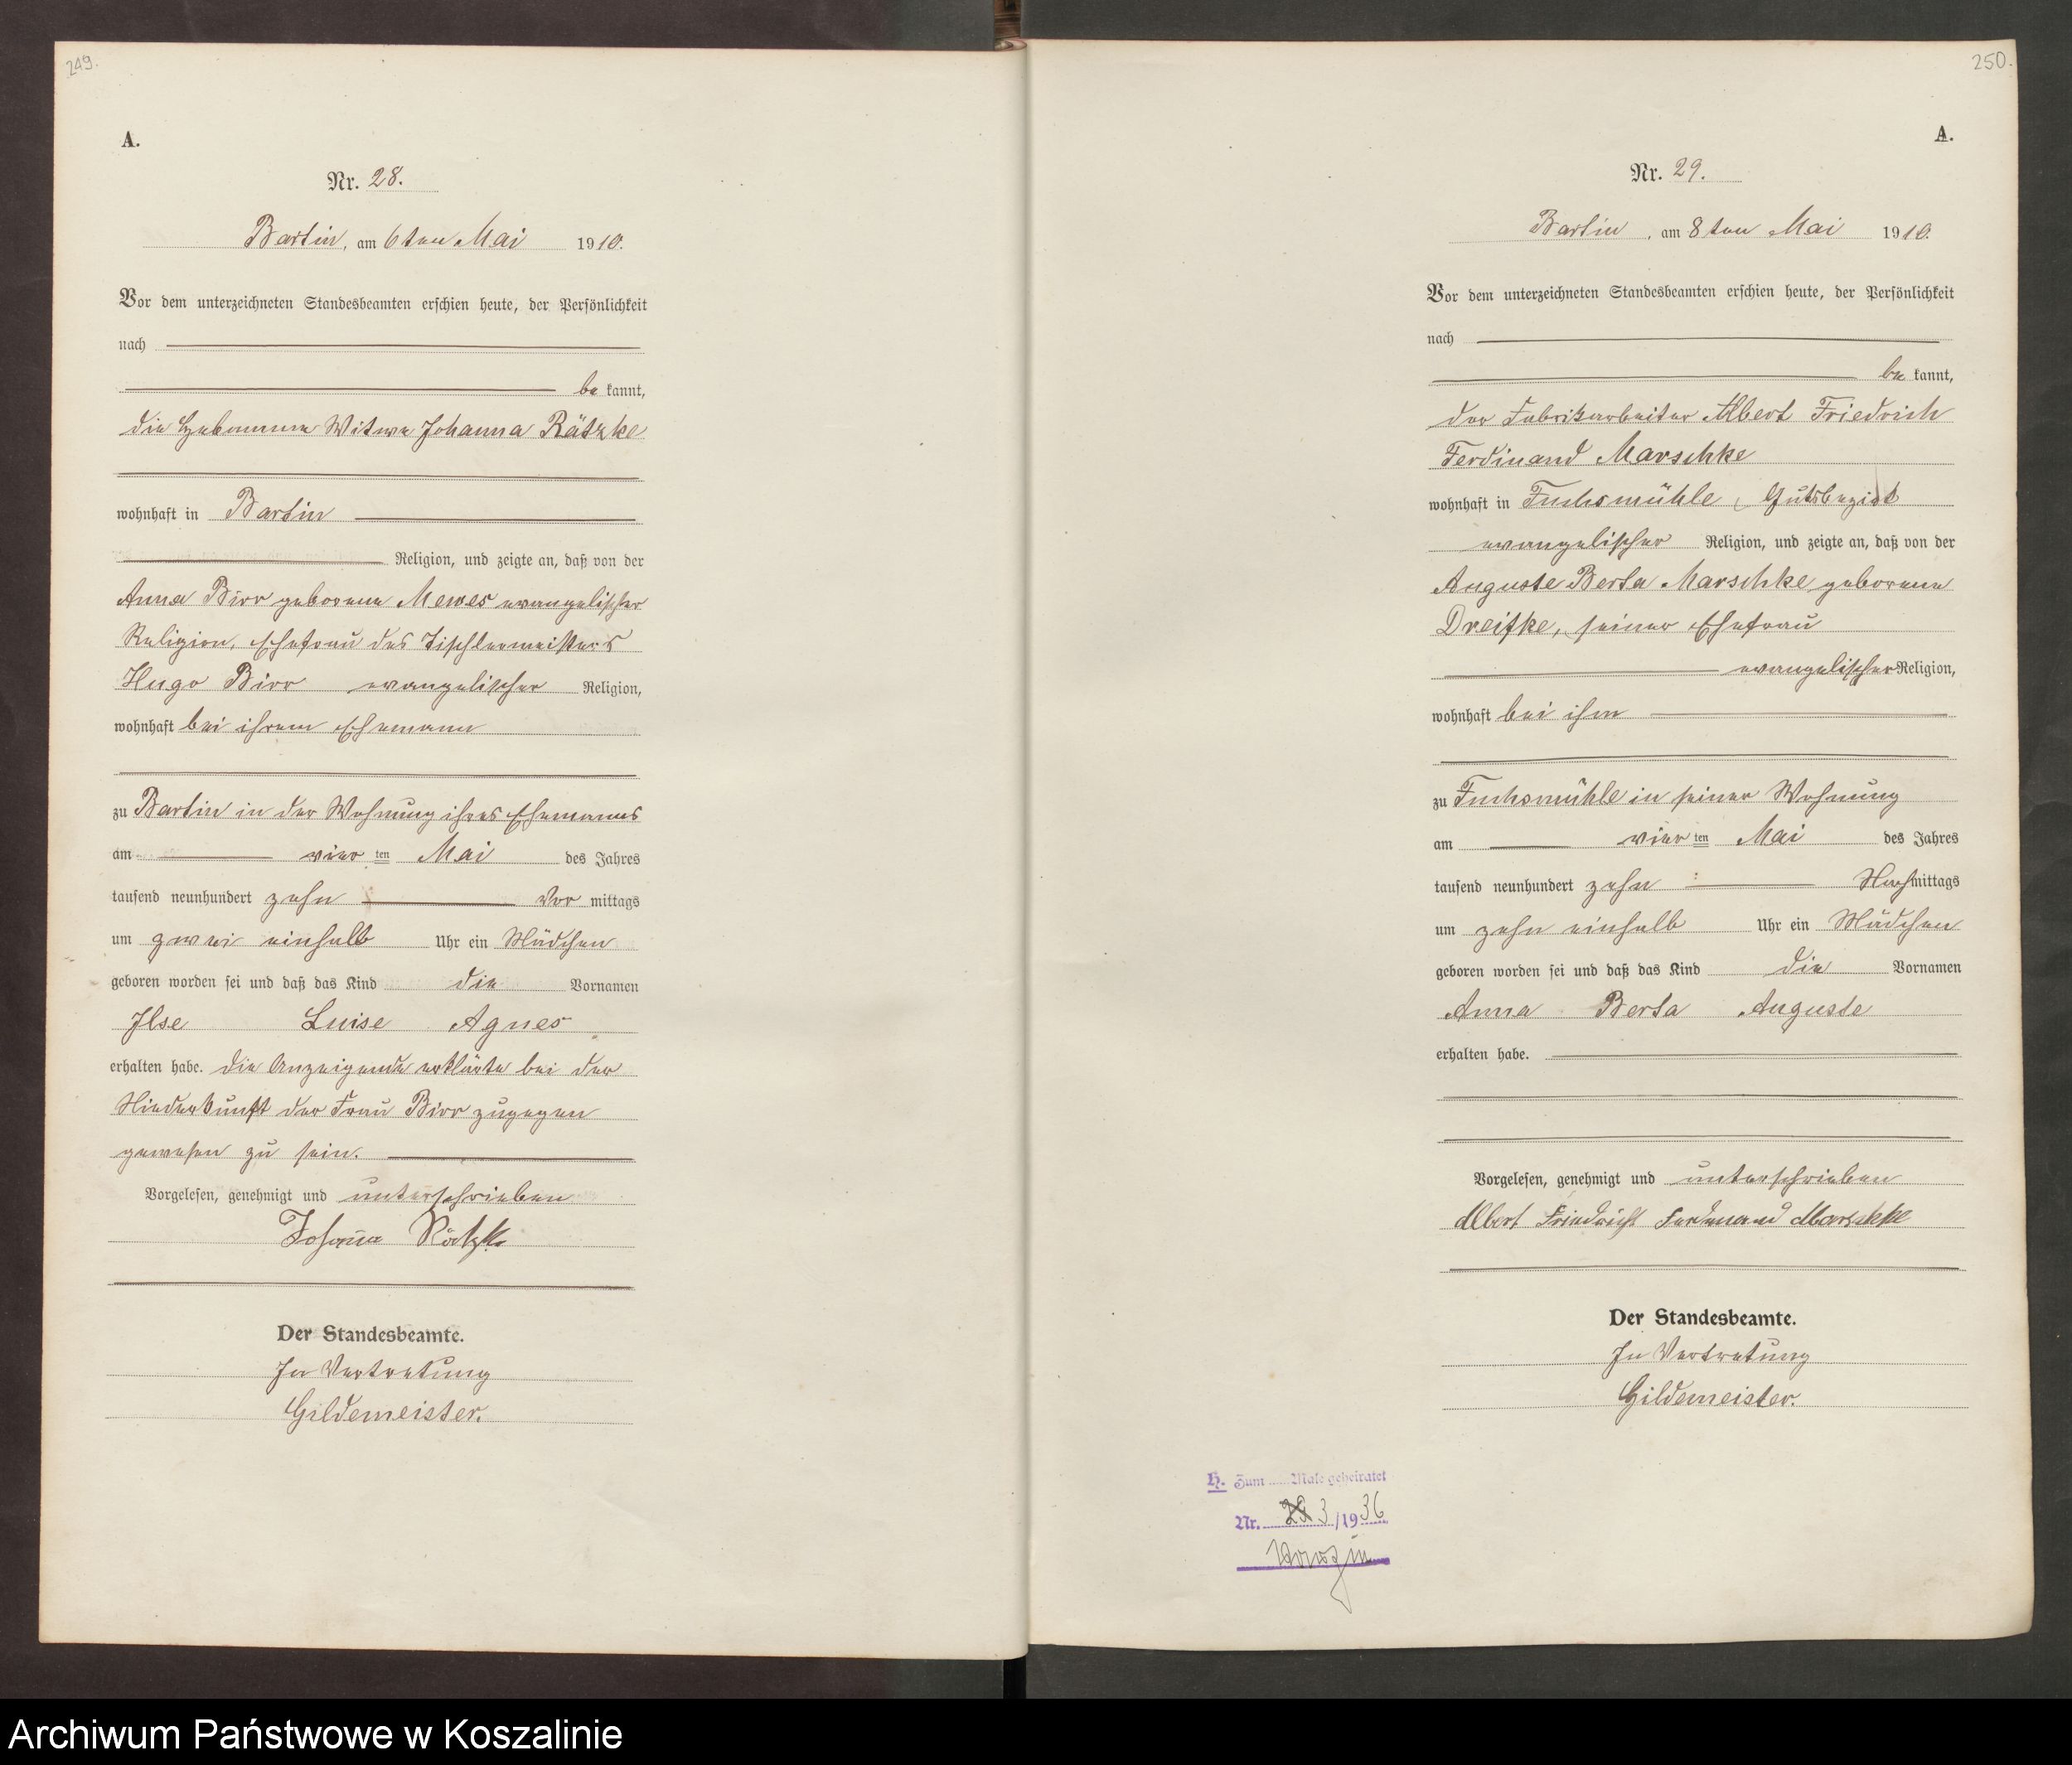 249.
A.
Nr. 28.
Bartin, am 6ten Mai 1910.
Vor dem unterzeichneten Standesbeamten erschien heute, der Persönlichkeit
nach
be kannt,
die Hebamme Witwe Johanna Rätzke
wohnhaft in Bartin
Religion, und zeigte an, daß von der
Anna Birr geborene Mewes evangelischer
Religion, Ehefrau des Tischlermeisters
Hugo Birr evangelischer Religion,
wohnhaft bei ihrem Ehemann
zu Bartin in der Wohnung ihres Ehemannes
am vier ten Mai des Jahres
tausend neunhundert zehn Vor mittags
um zwei einhalb Uhr ein Mädchen
geboren worden sei und daß das Kind die Vornamen
Ilse Luise Agnes
erhalten habe. Die Anzeigende erklärte bei der
Niederkunft der Frau Birr zugegen
gewesen zu sein.
Vorgelesen, genehmigt und unterschrieben
Johanna Rätzke
Der Standesbeamte.
In Vertretung
Gildemeister.
250.
A.
Nr. 29.
Bartin, am 8ten Mai 1910.
Vor dem unterzeichneten Standesbeamten erschien heute, der Persönlichkeit
nach
be kannt,
der Fabrikarbeiter Albert Friedrich
Ferdinand Marschke
wohnhaft in Fuchsmühle, Gutsbezirk
evangelischer Religion, und zeigte an, daß von der
Auguste Berta Marschke geborene
Dreifke, seiner Ehefrau
evangelischer Religion,
wohnhaft bei ihm
zu Fuchsmühle in seiner Wohnung
am vier ten Mai des Jahres
tausend neunhundert zehn Nachmittags
um zehn einhalb Uhr ein Mädchen
geboren worden sei und daß das Kind die Vornamen
Anna Berta Auguste
erhalten habe.
Vorgelesen, genehmigt und unterschrieben
Albert Friedrich Ferdinand Marschke
Der Standesbeamte.
In Vertretung
Gildemeister.
H. Zum ...... Male geheiratet
Nr. 3/1936
Varzin
Archiwum Państwowe w Koszalinie